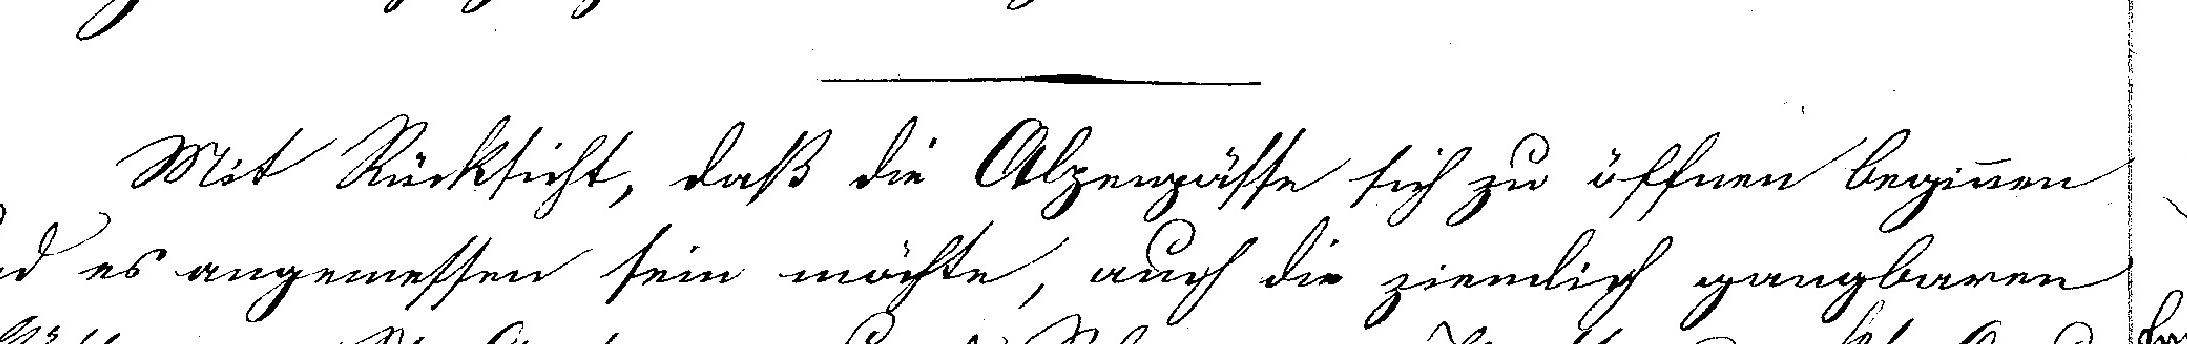 Mit Rücksicht, daß die Alpenpässe sich zu öffnen beginnen
es angemessen sein möchte, auch die ziemlich gangbaren